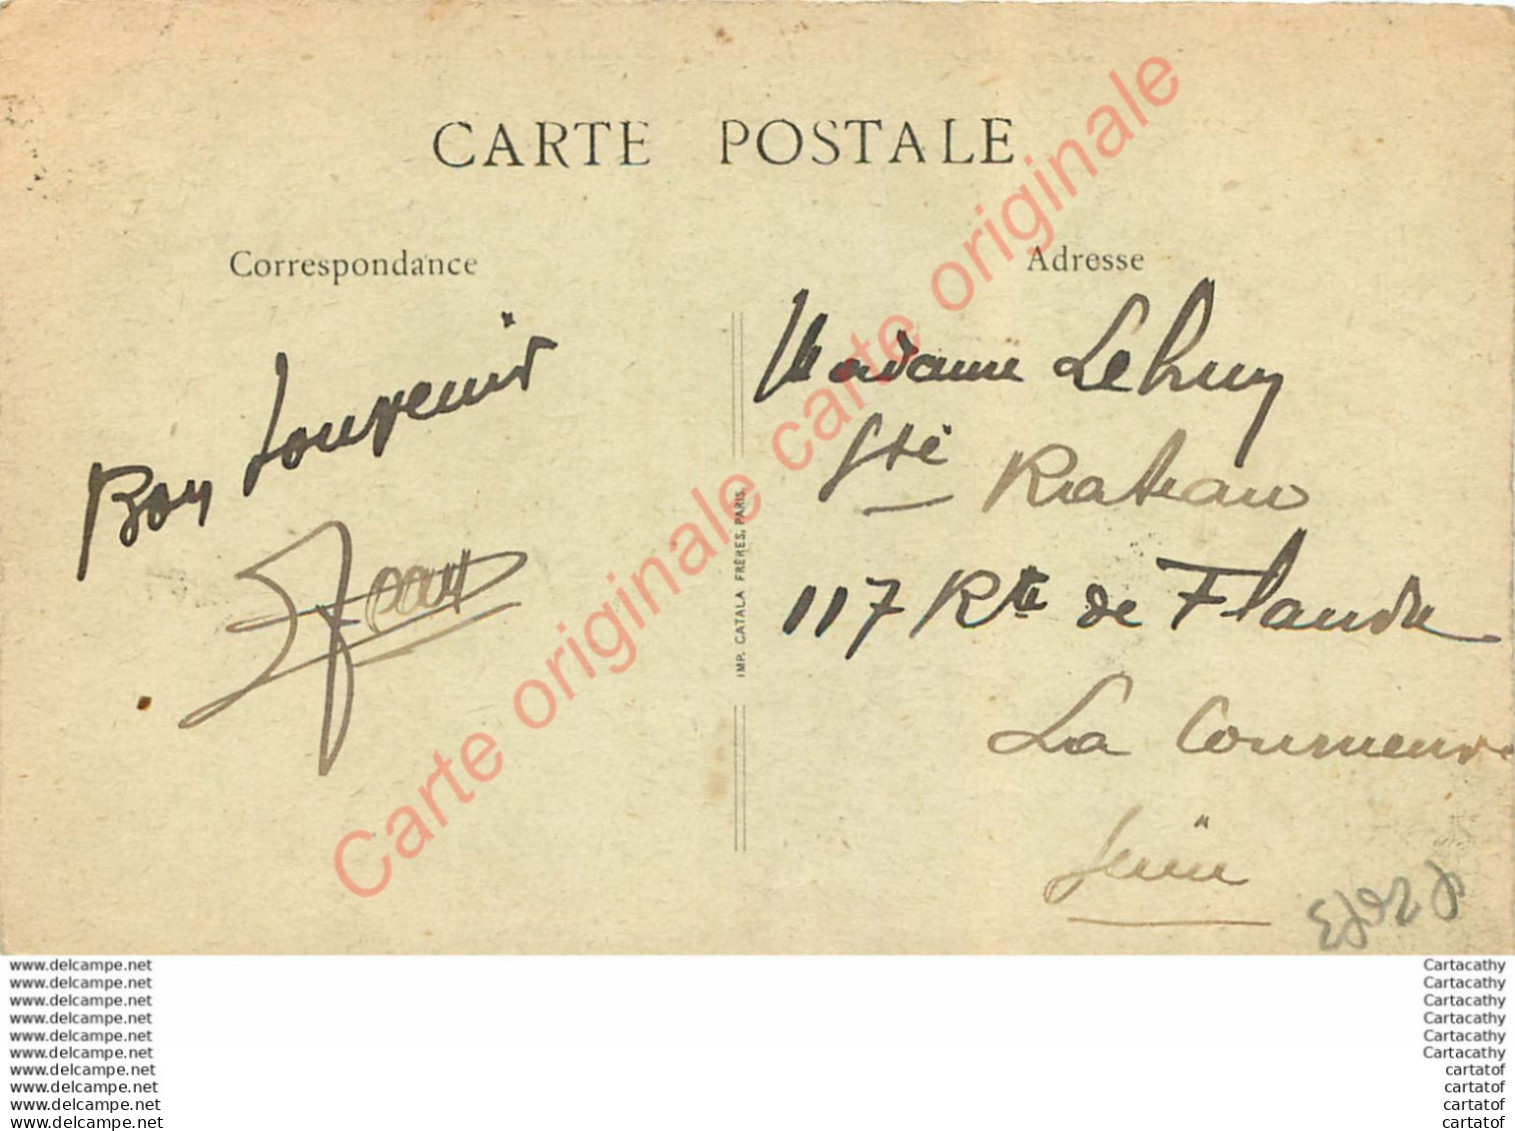 CARTE POSTALE
Correspondance
Adresse
Bon Souvenir
Madame Lehuy
Sté Rateau
117 Rte de Flandre
La Courneuve
Seine
IMP. CATALA FRÈRES, PARIS.
Carte originale carte originale
www.delcampe.net
www.delcampe.net
www.delcampe.net
www.delcampe.net
www.delcampe.net
www.delcampe.net
www.delcampe.net
www.delcampe.net
www.delcampe.net
www.delcampe.net
Cartacathy
Cartacathy
Cartacathy
Cartacathy
Cartacathy
Cartacathy
cartatof
cartatof
cartatof
cartatof